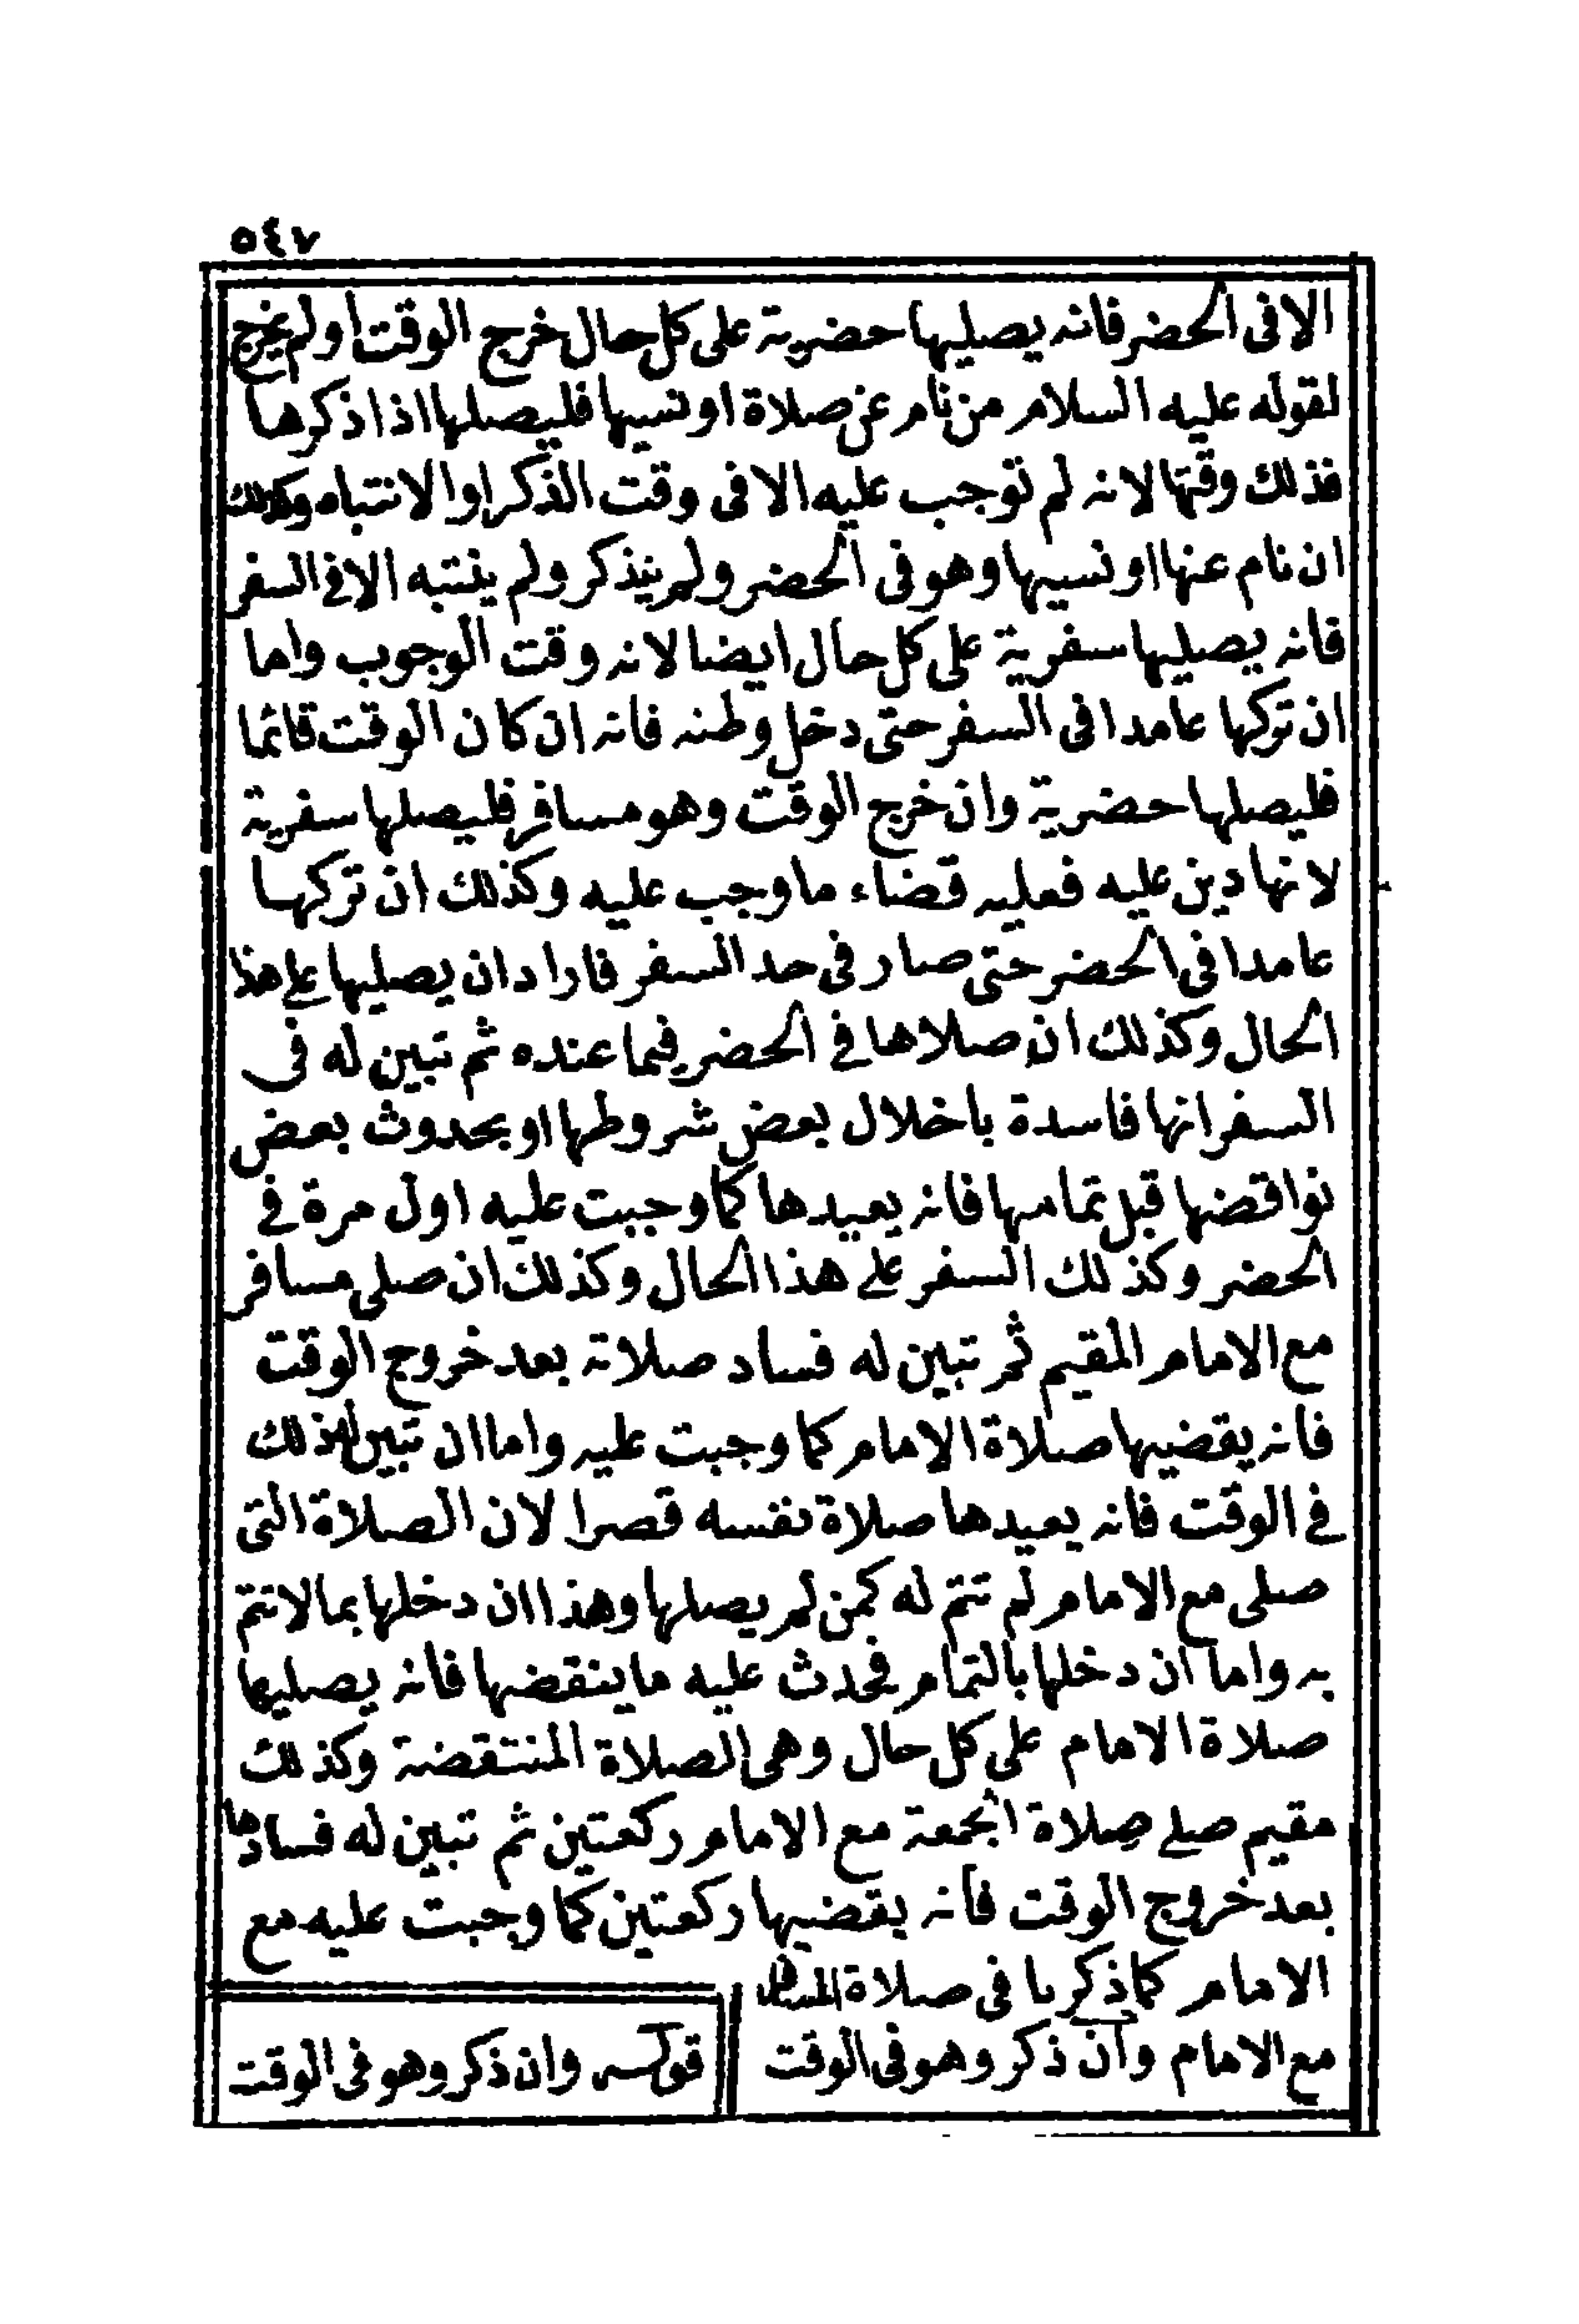 ٥٤٧
الا فى الحضر فانه يصليها حضرية على كل حال خرج الوقت اولم يخرج
لقوله عليه السلام من نام عن صلاة او نسيها فليصلها اذا ذكرها
فذلك وقتها لانه لم توجب عليه الا فى وقت الذكر او الانتباه وكذلك
ان نام عنها او نسيها وهو فى الحضر ولم يتذكر ولم ينتبه الا فى السفر
فانه يصليها سفرية على كل حال ايضا لانه وقت الوجوب واما
ان تركها عامدا فى السفر حتى دخل وطنه فانه ان كان الوقت قائما
فليصلها حضرية وان خرج الوقت وهو مسافر فليصلها سفرية
لانها دين عليه فعليه قضاء ما وجب عليه وكذلك ان تركها
عامدا فى الحضر حتى صار فى حد السفر فاراد ان يصليها على هذا
الحال وكذلك ان صلاها فى الحضر فيما عنده ثم تبين له فى
السفر انها فاسدة باخلال بعض شروطها او بحدوث بعض
نواقضها قبل تمامها فانه يعيدها كما وجبت عليه اول مرة فى
الحضر وكذلك السفر على هذا الحال وكذلك ان صلى مسافر
مع الامام المقيم ثم تبين له فساد صلاته بعد خروج الوقت
فانه يقضيها صلاة الامام كما وجبت عليه واما ان تبين له ذلك
فى الوقت فانه يعيدها صلاة نفسه قصرا لان الصلاة التى
صلى مع الامام لم تتم له كمن لم يصلها وهذا ان دخلها بما لا تتم
به واما ان دخلها بالتمام فحدث عليه ما ينقضها فانه يصليها
صلاة الامام على كل حال وهى الصلاة المنتقضة وكذلك
مقيم صلى صلاة الجمعة مع الامام ركعتين ثم تبين له فسادها
بعد خروج الوقت فانه يقضيها ركعتين كما وجبت عليه مع
الامام كما ذكرنا فى صلاة المسافر
مع الامام وان ذكر وهو فى الوقت
قوله وان ذكر وهو فى الوقت